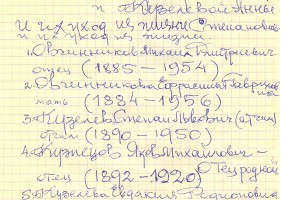 Кузелевой Анны
и их уход из жизни Степановны
и их уход из жизни
1. Овчинников Михаил Дмитриевич
отец (1885-1954)
2. Овчинникова Ефросинья Гавриловна
мать (1884-1956)
3. Кузелев Степан Львович (отчим)
отчим (1890-1950)
4. Кузнецов Яков Михайлович-
отец (1892-1920) Отец родной
5. Кузелева Евдакия Родионовна